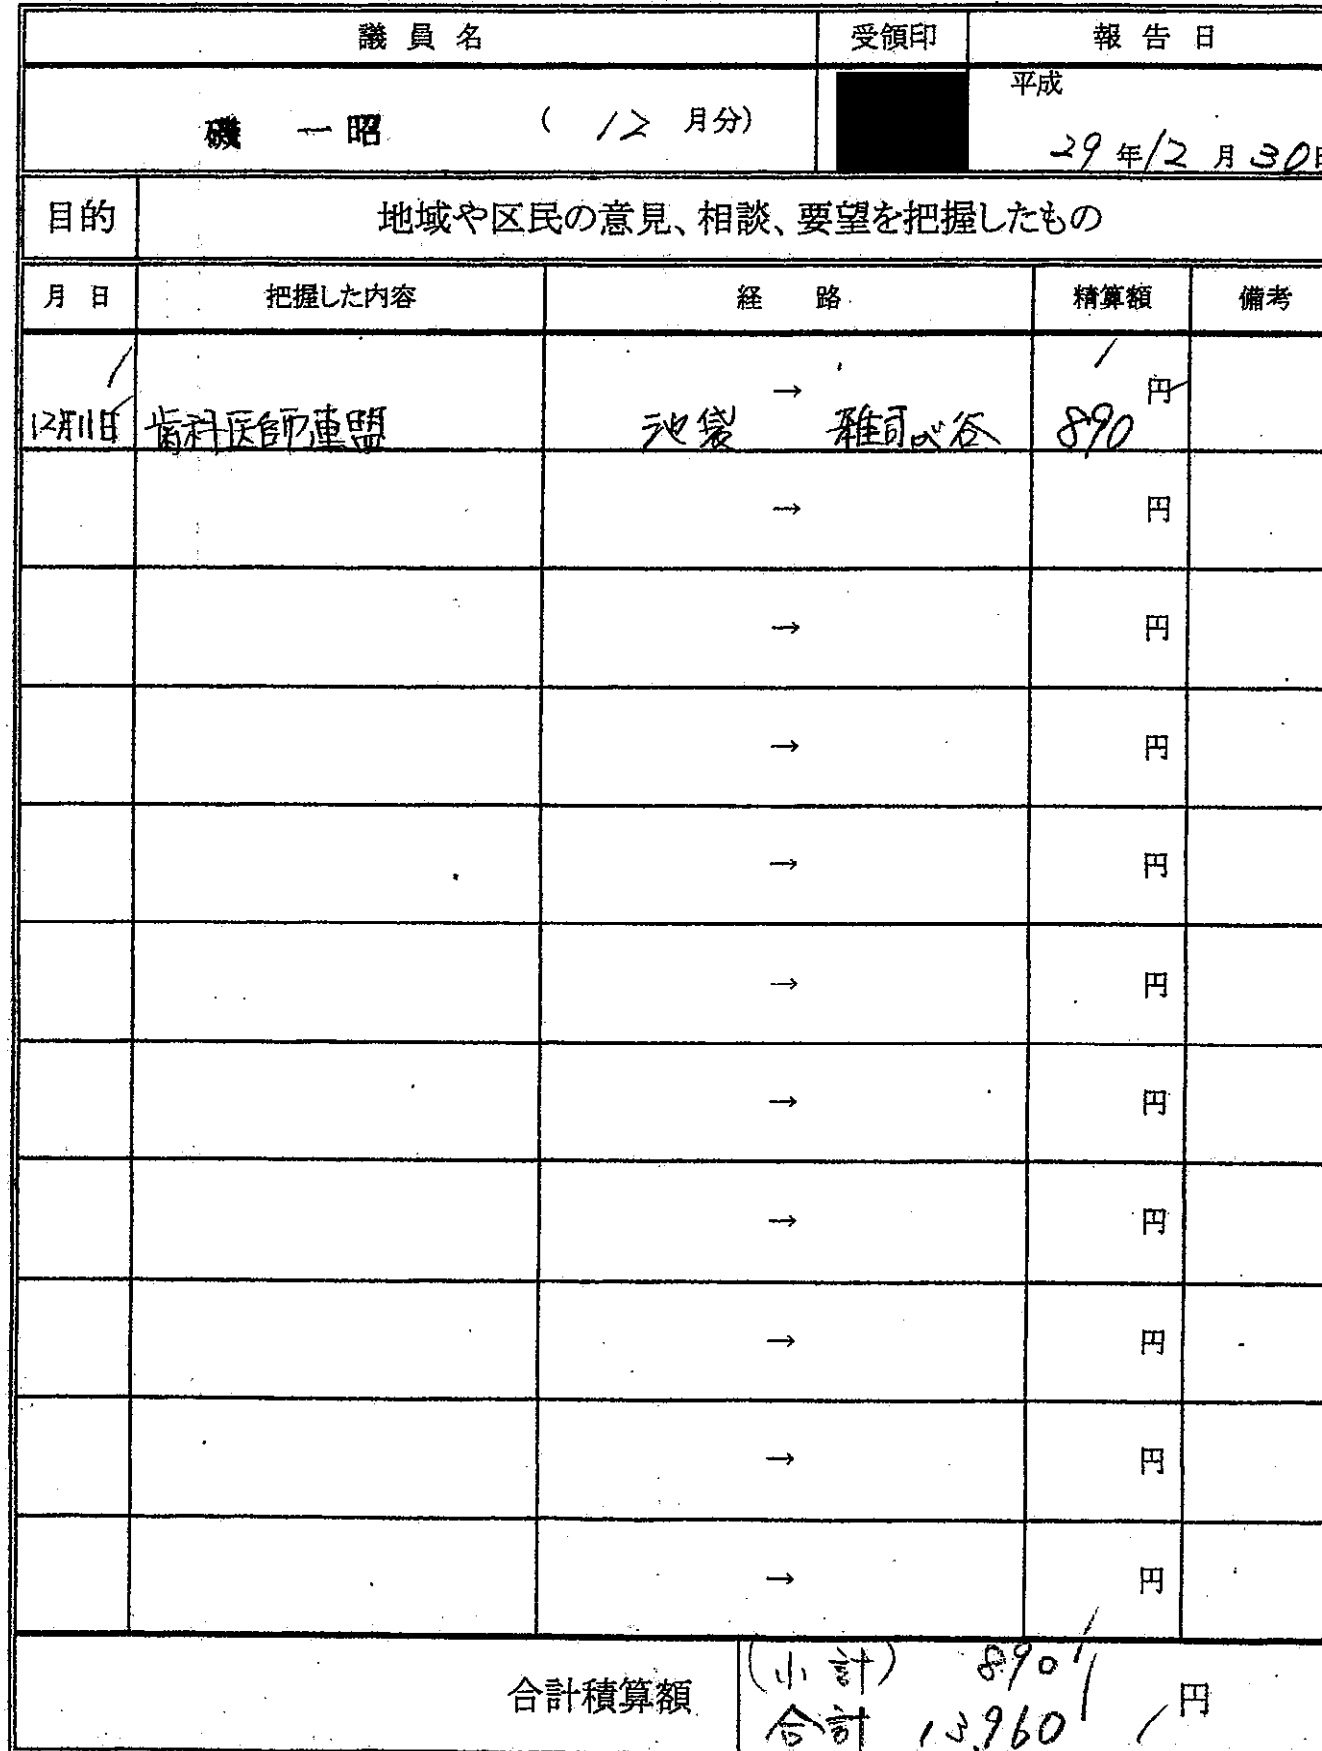 議員名 受領印 報告日
磯 一昭 ( 12 月分) 平成 29 年 12 月 30日
目的 地域や区民の意見、相談、要望を把握したもの
月 日 把握した内容 経 路 精算額 備考
12月11日 歯科医師連盟 池袋 → 雑司が谷 890 円
→ 円
→ 円
→ 円
→ 円
→ 円
→ 円
→ 円
→ 円
→ 円
→ 円
合計積算額 (小計) 890
合計 13,960 円